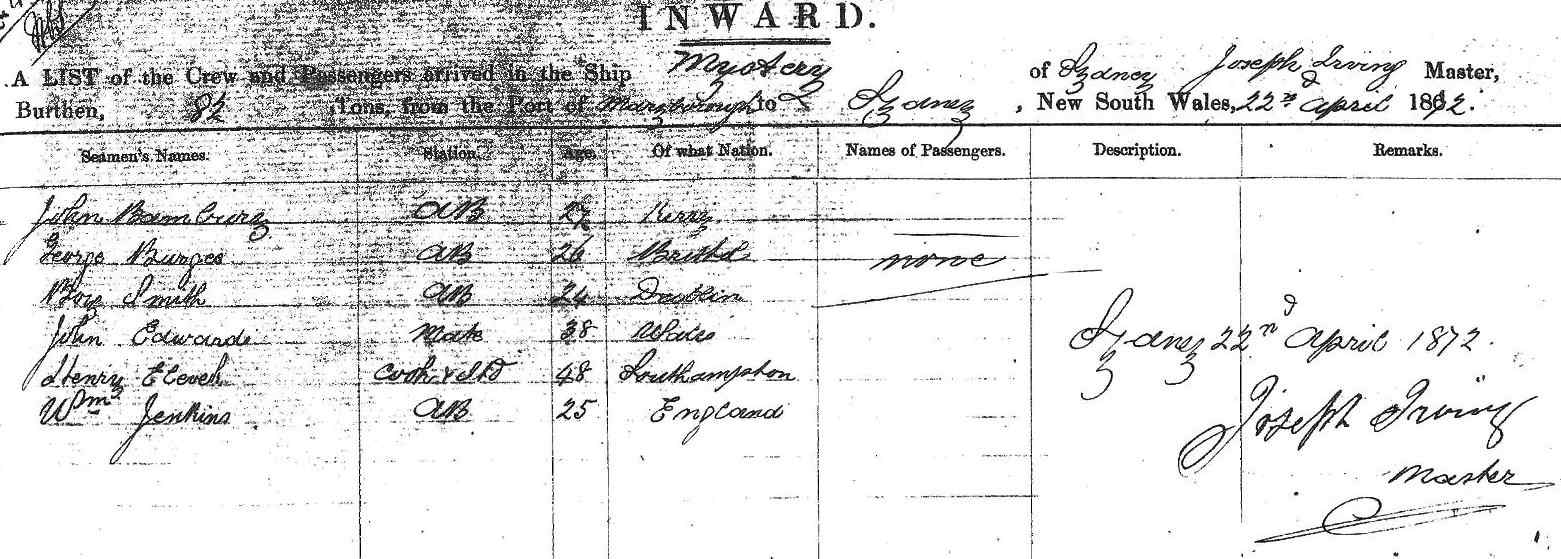 INWARD.
A LIST of the Crew and Passengers arrived in the Ship Mystery of Sydney Joseph Irving Master,
Burthen, 82 Tons, from the Port of Maryborough to Sydney, New South Wales, 22nd April 1872.
Seamen's Names. Station. Age. Of what Nation. Names of Passengers. Description. Remarks.
John AB 27 Kerry
George Burges AB 26 none
Smith AB 24 Dublin
John Edwards Mate 38 Wales Sydney 22nd April 1872.
Henry Cook & Std 48 Southampton
Wm Jenkins AB 25 England Joseph Irving
Master